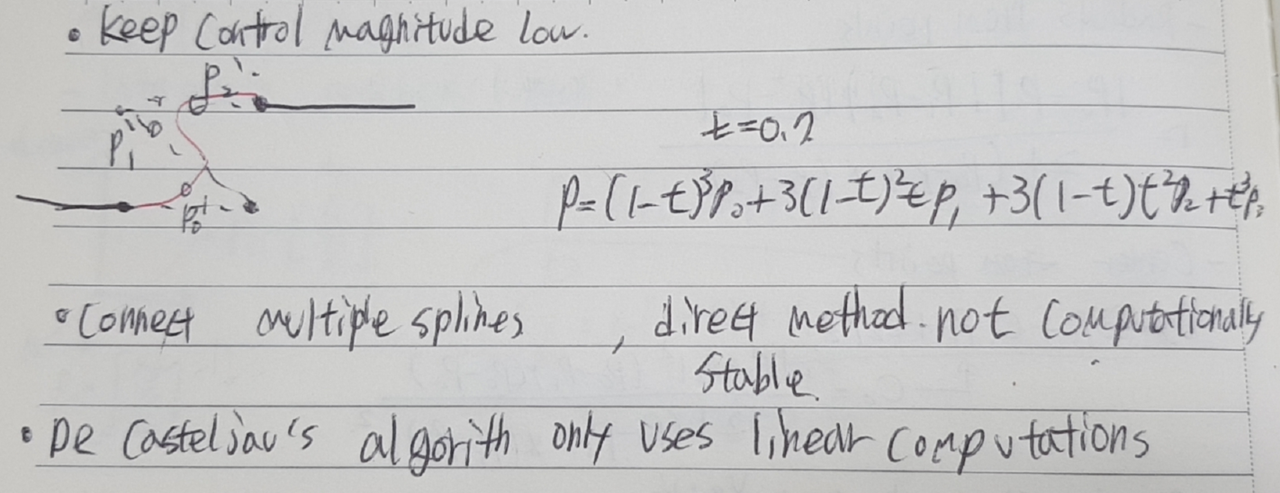 • Keep control magnitude low.
P₂
P₁
t=0.2
P₀
P=(1-t)³P₀+3(1-t)²tP₁+3(1-t)t²P₂+t³P₃
• Connect multiple splines , direct method not computationally
stable.
• De Casteljau's algorith only uses linear computations